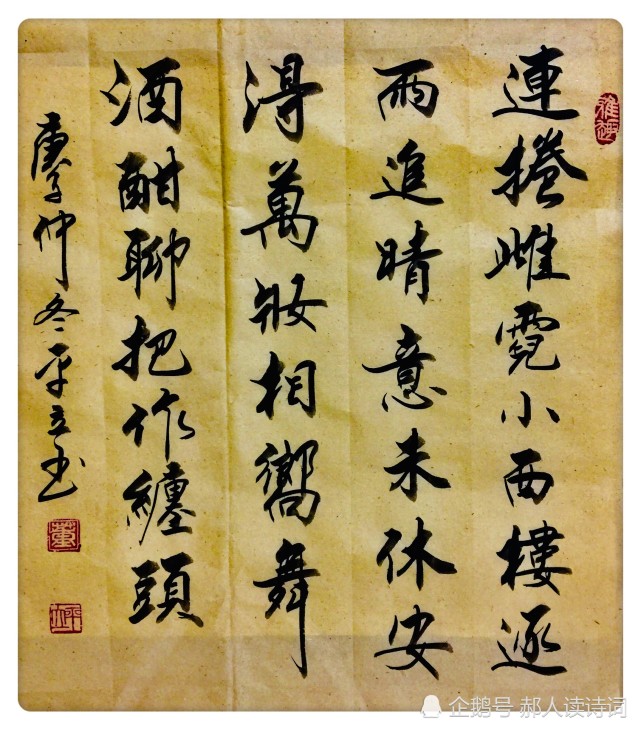 雅趣
連捲雌霓小西樓逐
雨追晴意未休安
得萬妝相嚮舞
酒酣聊把作纏頭
庚子仲冬平立书
董
平立
企鹅号 郝人读诗词